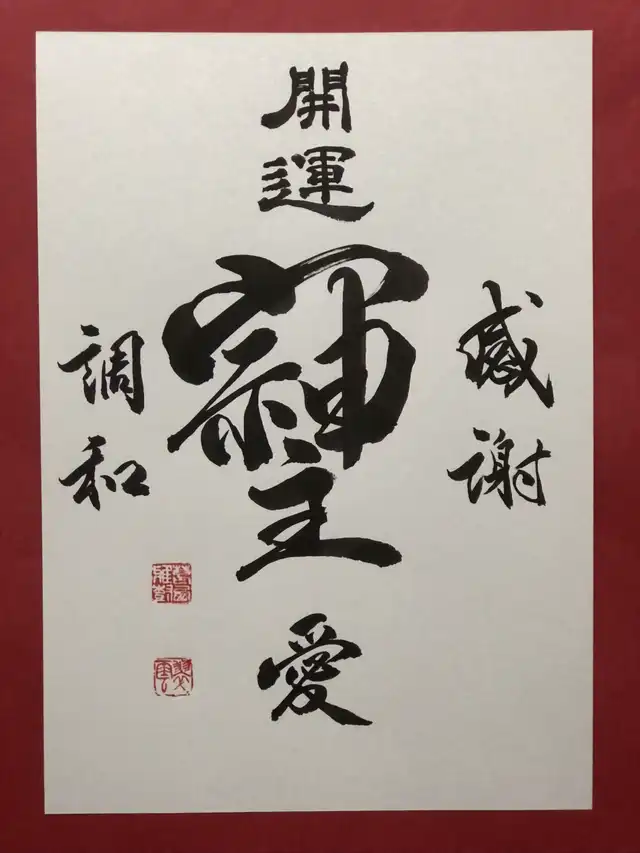 開運
感謝
調和
愛